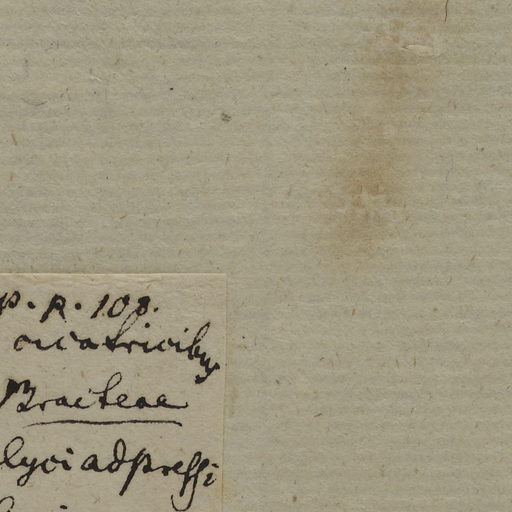 p. R. 108.
cicatricibus
Bracteae
lyci adpressi